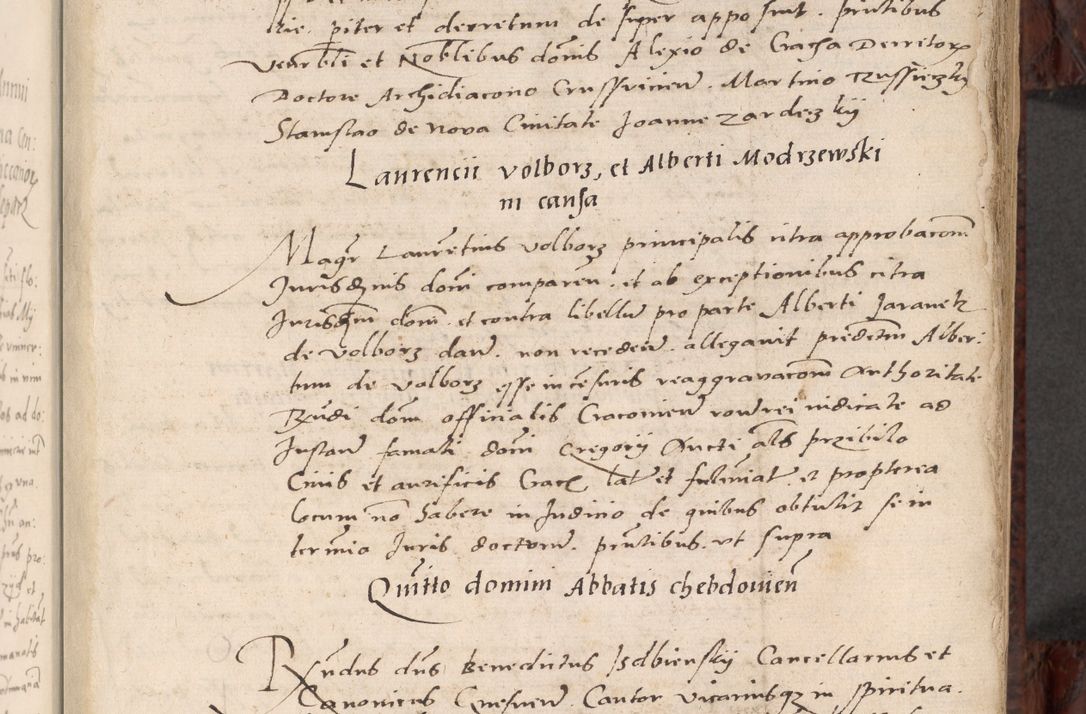 rie. pąter et decretum de super appo suit. pntibus
Venrbli et Noblibus domis Alexio de Gacsa Decretorz
Doctore Archidiacono Crusswicien. Martino Russieczky
Stanislao de Nova Civitate Joanne Zardeczkij
Laurencii Volborz, et Alberti Modrzewski
in causa
Magr Lauretius Volborz principalis citra approbacom
Jurisdznis domi comparen. et ab exceptionibus citra
Jurisdzm dom. et contra libellu pro parte Alberti Jaranek
de Volborz datu. non receden. allegavit predctm Alber:
tum de Volborz esse in censuris reaggravacom Authoritate
Rndi dom officialis Cracovien contrei iudicate ad
Instan famati domi Gregorij Aucti als przibilo
Civis et aurificis Crac lat et fulminat. et propterea
locum no habere in Judicio de quibus obtulit se in
termio Juris docturu. pntibus. ut supra
Quitto domini Abbatis Chebdowien
Rndus dns Benedictus Isdbienskij Cancellarius et
Canonicus Gnesnen Cantor vicariusqz in spiritua.